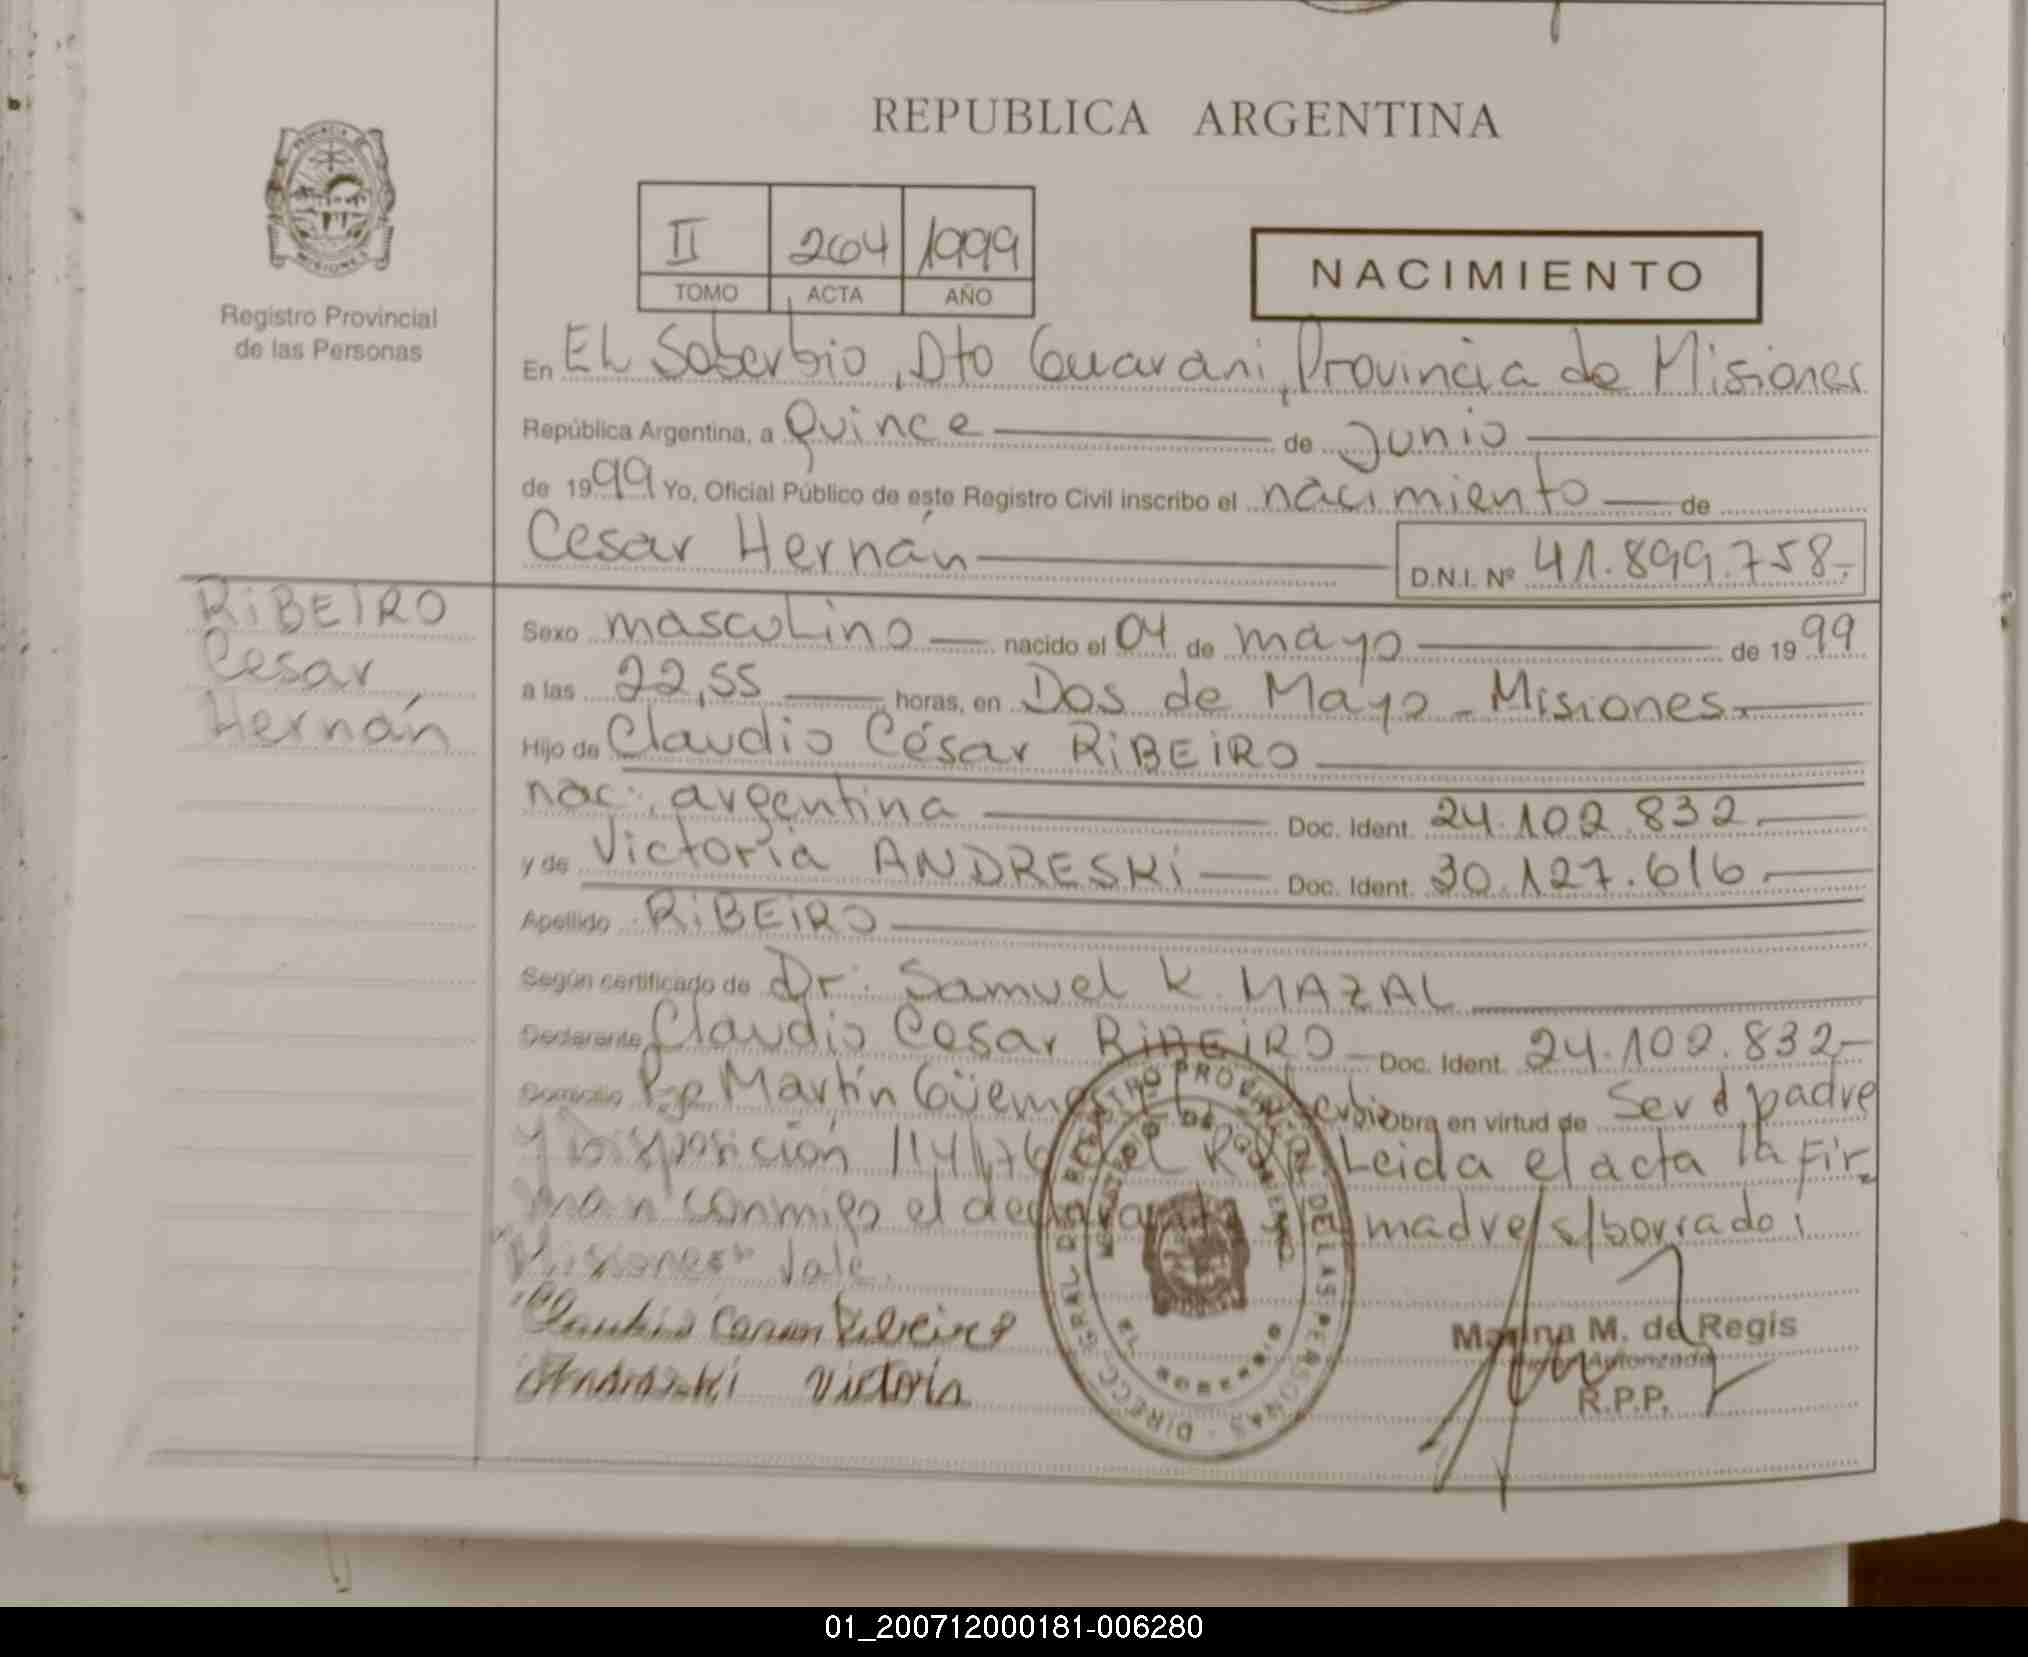 REPUBLICA ARGENTINA
PROVINCIA DE MISIONES
Registro Provincial
de las Personas
II 264 1999
TOMO ACTA AÑO
NACIMIENTO
En El Soberbio, Dto Guarani, Provincia de Misiones
República Argentina, a Quince de Junio
de 1999 Yo, Oficial Público de este Registro Civil inscribo el nacimiento de
Cesar Hernán D.N.I. Nº 41.899.758.-
RiBEIRO
Cesar
Hernán
Sexo masculino nacido el 04 de mayo de 1999
a las 22,55 horas, en Dos de Mayo - Misiones.
Hijo de Claudio César RiBEiRO
nac. argentina Doc. Ident. 24.102.832.
y de Victoria ANDRESKi Doc. Ident. 30.127.616
Apellido RiBEiRO
Según certificado de Dr. Samuel K. MAZAL
Declarante Claudio Cesar RiBEiRO Doc. Ident. 24.102.832-
Domicilio Martín Güemes Obra en virtud de Ser el padre
y Disposición del Leida el acta la fir
man conmigo el declarante y la madre s/borrado:
"Misiones" Vale.
Victoria
DIRECC. GRAL. REGISTRO PROVINCIAL DE LAS PERSONAS
MINISTERIO DE GOBIERNO
Marina M. de Regis
Autorizada
R.P.P.
01_200712000181-006280